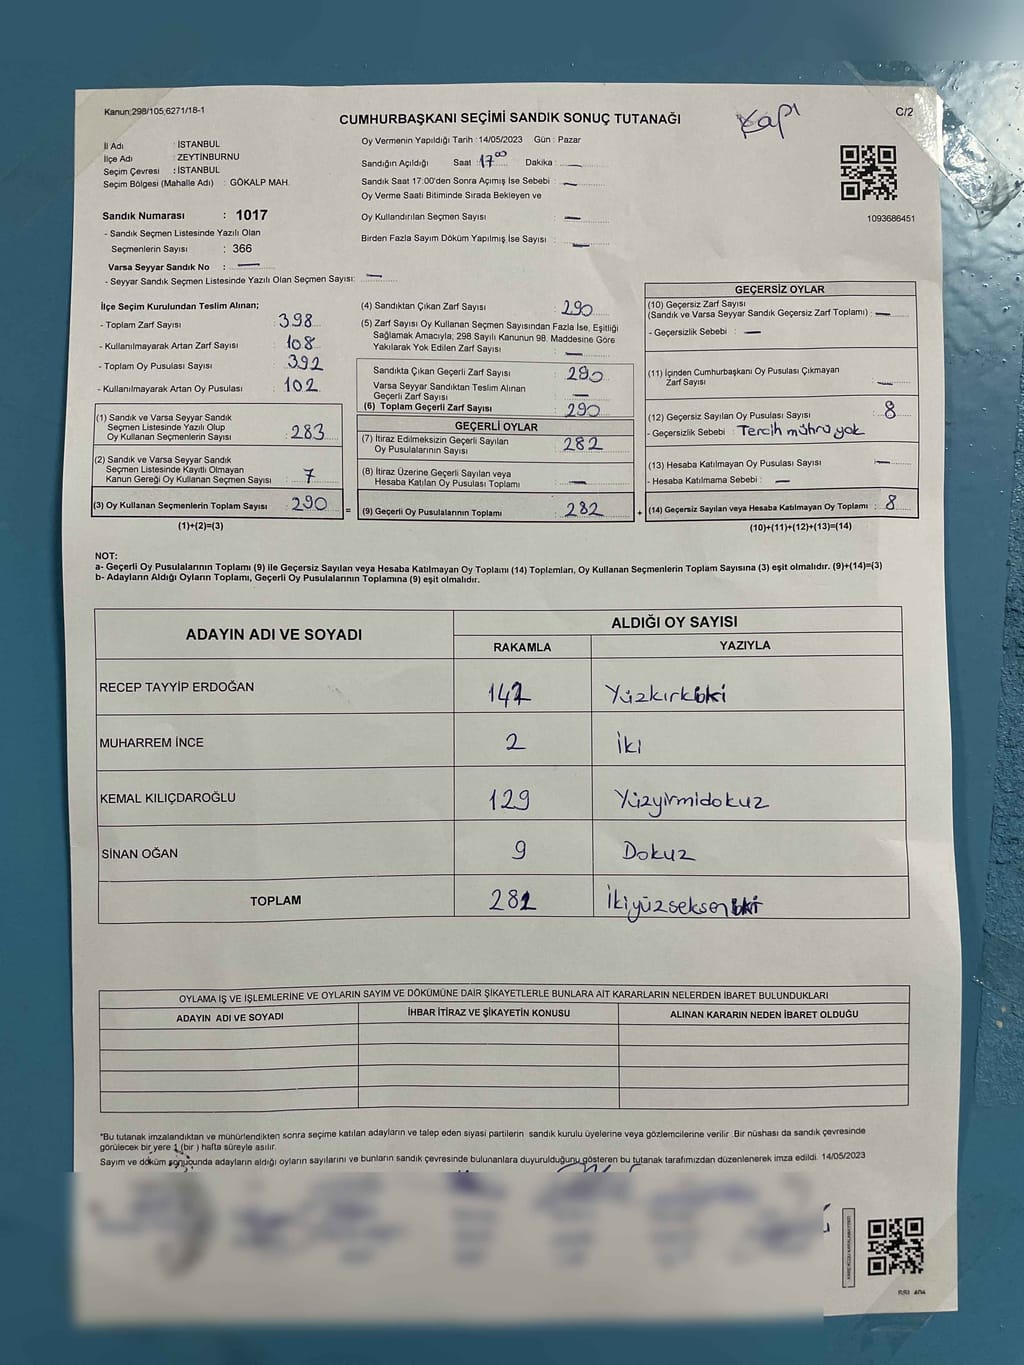 Kanun:298/105,6271/18-1
CUMHURBAŞKANI SEÇİMİ SANDIK SONUÇ TUTANAĞI
Kapı
C/2
İl Adı : İSTANBUL
İlçe Adı : ZEYTİNBURNU
Seçim Çevresi : İSTANBUL
Seçim Bölgesi (Mahalle Adı) : GÖKALP MAH.
Sandık Numarası : 1017
- Sandık Seçmen Listesinde Yazılı Olan
Seçmenlerin Sayısı : 366
Varsa Seyyar Sandık No : —
- Seyyar Sandık Seçmen Listesinde Yazılı Olan Seçmen Sayısı: —
Oy Vermenin Yapıldığı Tarih : 14/05/2023 Gün : Pazar
Sandığın Açıldığı Saat : 17⁰⁰ Dakika : —
Sandık Saat 17:00'den Sonra Açımış İse Sebebi : —
Oy Verme Saati Bitiminde Sırada Bekleyen ve
Oy Kullandırılan Seçmen Sayısı : —
Birden Fazla Sayım Döküm Yapılmış İse Sayısı : —
1093686451
İlçe Seçim Kurulundan Teslim Alınan;
- Toplam Zarf Sayısı : 398
- Kullanılmayarak Artan Zarf Sayısı : 108
- Toplam Oy Pusulası Sayısı : 392
- Kullanılmayarak Artan Oy Pusulası : 102
(1) Sandık ve Varsa Seyyar Sandık
Seçmen Listesinde Yazılı Olup
Oy Kullanan Seçmenlerin Sayısı : 283
(2) Sandık ve Varsa Seyyar Sandık
Seçmen Listesinde Kayıtlı Olmayan
Kanun Gereği Oy Kullanan Seçmen Sayısı : 7
(3) Oy Kullanan Seçmenlerin Toplam Sayısı : 290
(1)+(2)=(3)
=
(4) Sandıktan Çıkan Zarf Sayısı : 290
(5) Zarf Sayısı Oy Kullanan Seçmen Sayısından Fazla İse, Eşitliği
Sağlamak Amacıyla; 298 Sayılı Kanunun 98. Maddesine Göre
Yakılarak Yok Edilen Zarf Sayısı : —
Sandıkta Çıkan Geçerli Zarf Sayısı : 290
Varsa Seyyar Sandıktan Teslim Alınan
Geçerli Zarf Sayısı : —
(6) Toplam Geçerli Zarf Sayısı : 290
GEÇERLİ OYLAR
(7) İtiraz Edilmeksizin Geçerli Sayılan
Oy Pusulalarının Sayısı : 282
(8) İtiraz Üzerine Geçerli Sayılan veya
Hesaba Katılan Oy Pusulası Toplamı : —
(9) Geçerli Oy Pusulalarının Toplamı : 282
+
GEÇERSİZ OYLAR
(10) Geçersiz Zarf Sayısı
(Sandık ve Varsa Seyyar Sandık Geçersiz Zarf Toplamı) : —
- Geçersizlik Sebebi : —
(11) İçinden Cumhurbaşkanı Oy Pusulası Çıkmayan
Zarf Sayısı : —
(12) Geçersiz Sayılan Oy Pusulası Sayısı : 8
- Geçersizlik Sebebi : Tercih mührü yok
(13) Hesaba Katılmayan Oy Pusulası Sayısı : —
- Hesaba Katılmama Sebebi : —
(14) Geçersiz Sayılan veya Hesaba Katılmayan Oy Toplamı : 8
(10)+(11)+(12)+(13)=(14)
NOT:
a- Geçerli Oy Pusulalarının Toplamı (9) ile Geçersiz Sayılan veya Hesaba Katılmayan Oy Toplamı (14) Toplamları, Oy Kullanan Seçmenlerin Toplam Sayısına (3) eşit olmalıdır. (9)+(14)=(3)
b- Adayların Aldığı Oyların Toplamı, Geçerli Oy Pusulalarının Toplamına (9) eşit olmalıdır.
ADAYIN ADI VE SOYADI
ALDIĞI OY SAYISI
RAKAMLA YAZIYLA
RECEP TAYYİP ERDOĞAN 142 Yüzkırkiki
MUHARREM İNCE 2 İki
KEMAL KILIÇDAROĞLU 129 Yüzyirmidokuz
SİNAN OĞAN 9 Dokuz
TOPLAM 282 İkiyüzsekseniki
OYLAMA İŞ VE İŞLEMLERİNE VE OYLARIN SAYIM VE DÖKÜMÜNE DAİR ŞİKAYETLERLE BUNLARA AİT KARARLARIN NELERDEN İBARET BULUNDUKLARI
ADAYIN ADI VE SOYADI İHBAR İTİRAZ VE ŞİKAYETİN KONUSU ALINAN KARARIN NEDEN İBARET OLDUĞU
*Bu tutanak imzalandıktan ve mühürlendikten sonra seçime katılan adayların ve talep eden siyasi partilerin sandık kurulu üyelerine veya gözlemcilerine verilir. Bir nüshası da sandık çevresinde
görülecek bir yere 1 (bir ) hafta süreyle asılır.
Sayım ve döküm sonucunda adayların aldığı oyların sayılarını ve bunların sandık çevresinde bulunanlara duyurulduğunu gösteren bu tutanak tarafımızdan düzenlenerek imza edildi. 14/05/2023